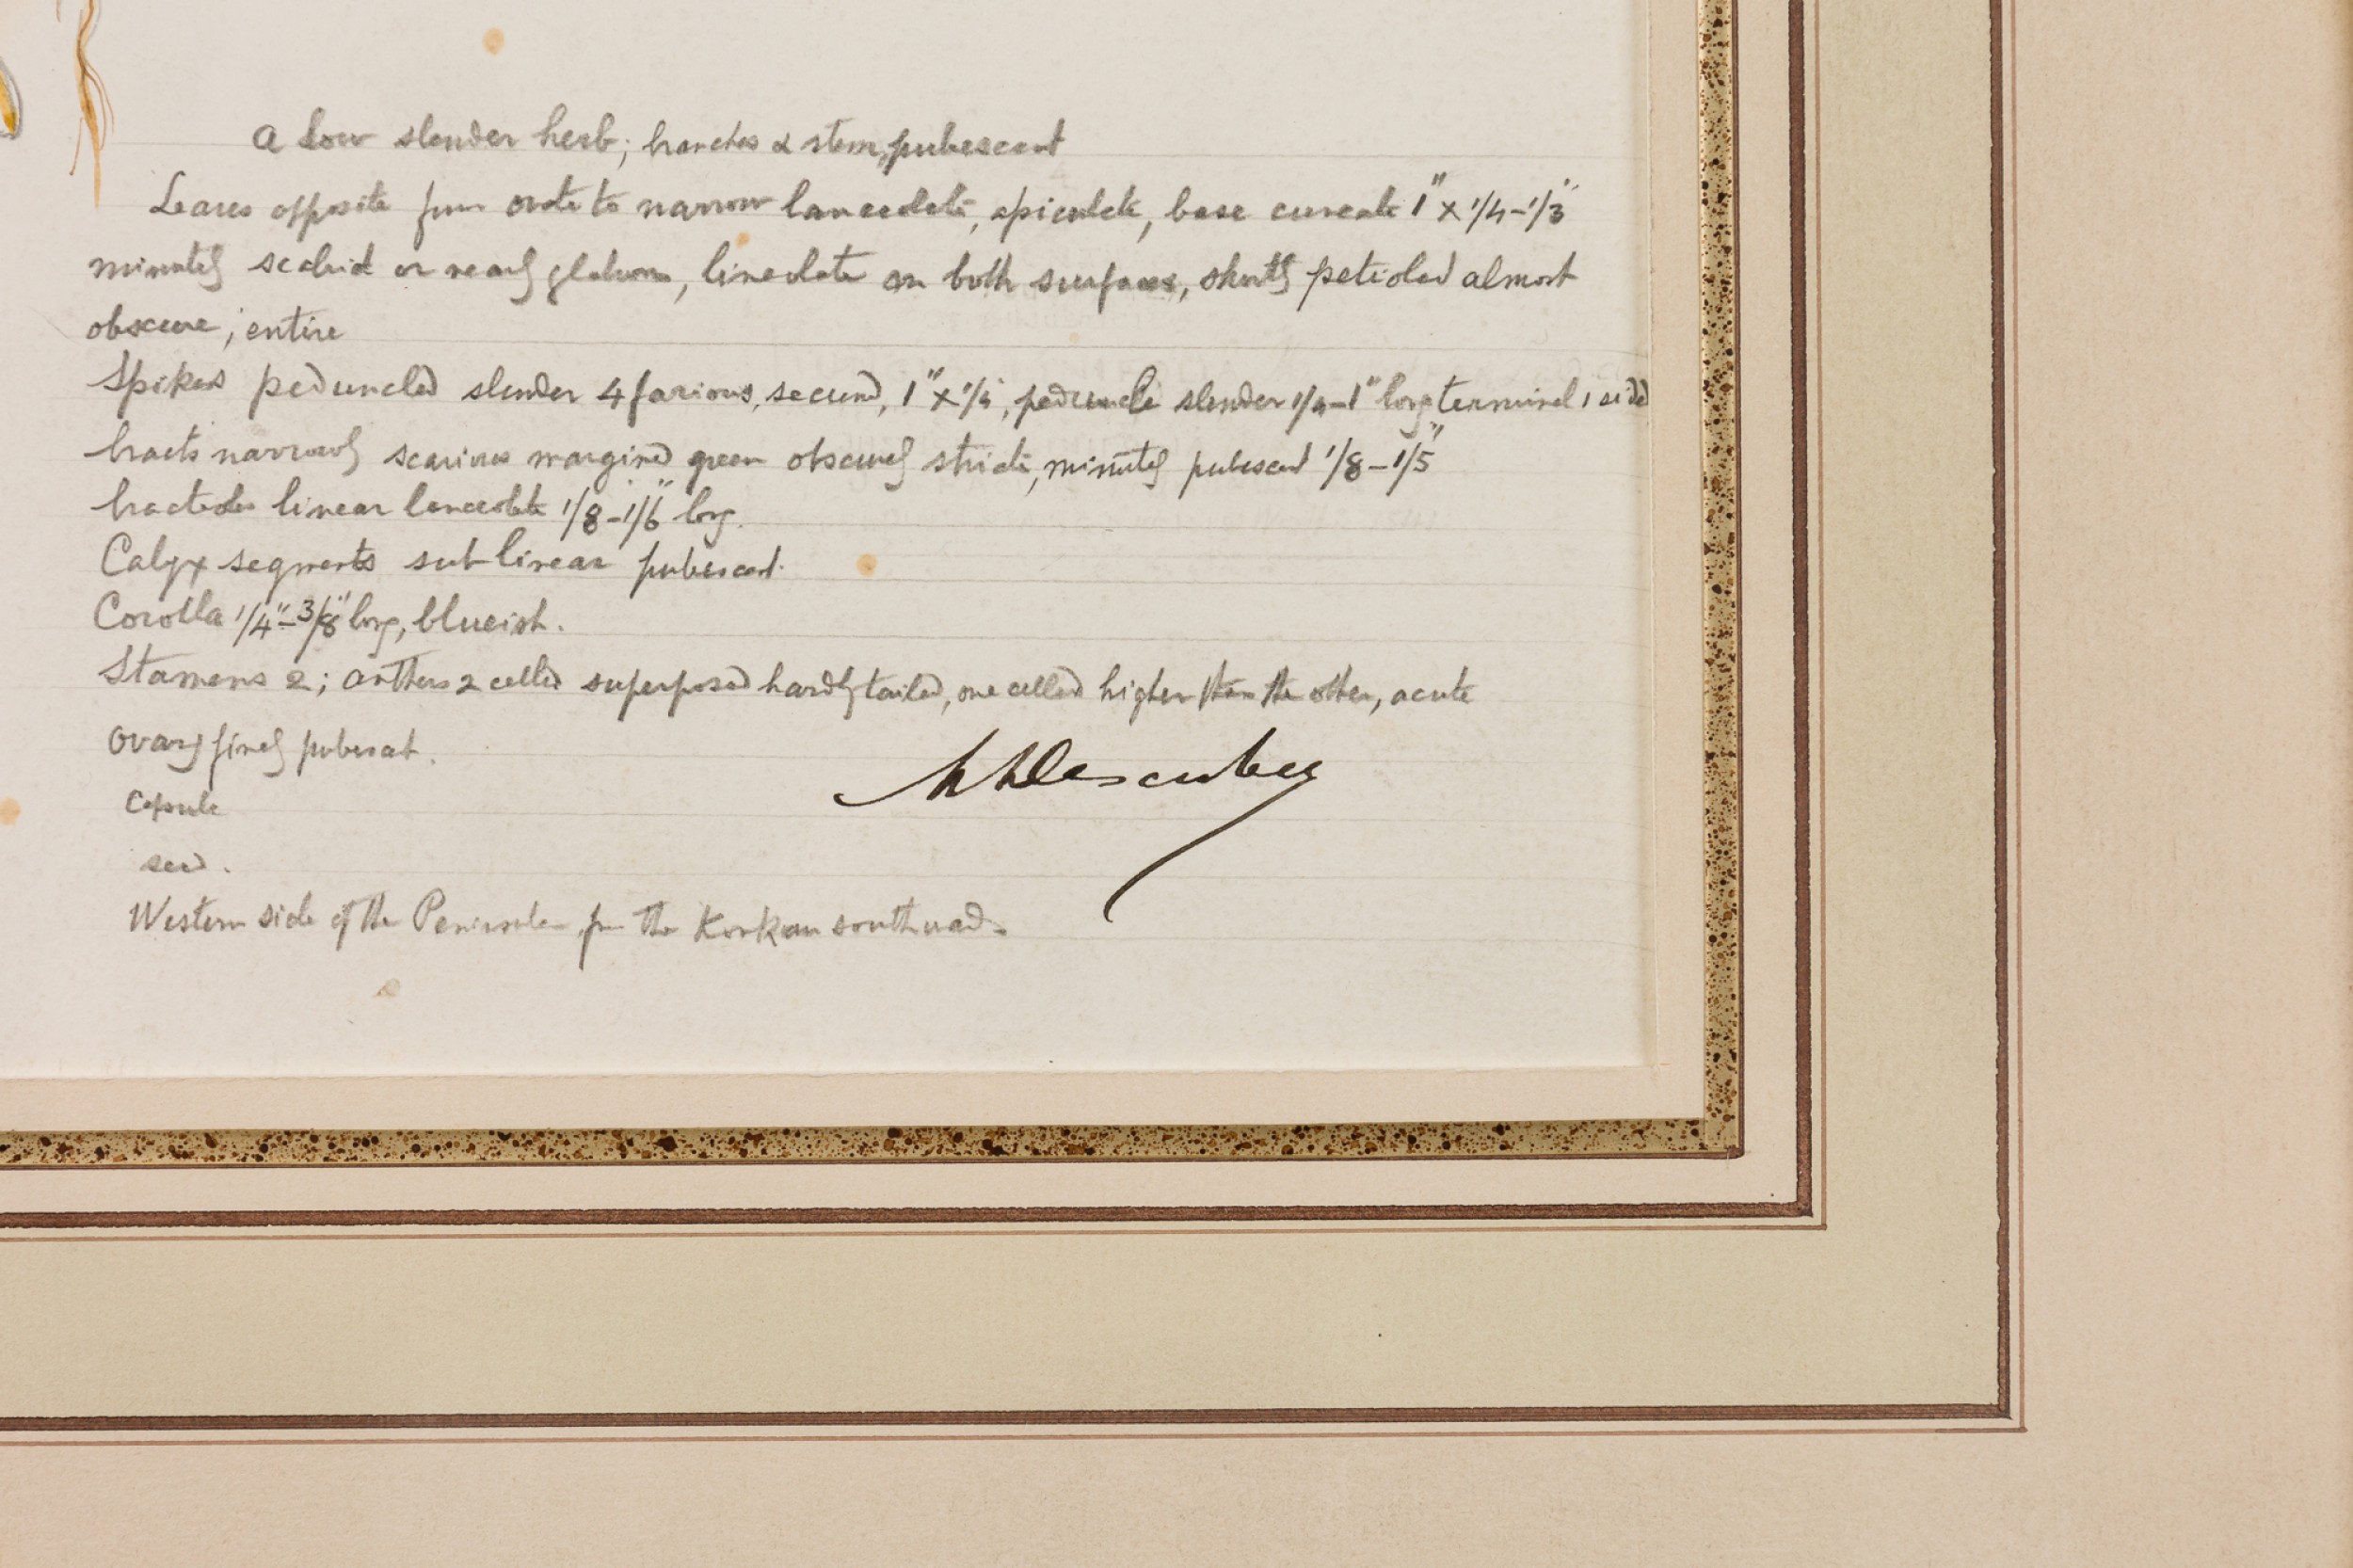 A low slender herb; branches & stem, pubescent
Leaves opposite from ovate to narrow lanceolate, apiculate, base cuneate 1" x 1/4-1/3"
minutely scabrid or nearly glabrous, lineolate on both surfaces, shortly petioled almost
obscure; entire
Spikes peduncled slender 4 farious, secund, 1" x 1/4", peduncle slender 1/4-1" long terminal 1 sided
bracts narrowly scarious margined green obscurely striate, minutely pubescent 1/8-1/5"
bracteoles linear lanceolate 1/8-1/6" long.
Calyx segments sub-linear pubescent.
Corolla 1/4"-3/8" long, blueish.
Stamens 2; anthers 2 celled superposed hardly tailed, one celled higher than the other, acute
Ovary finely pubescent.
Capsule
seed.
Western side of the Peninsula from the Konkan southward.